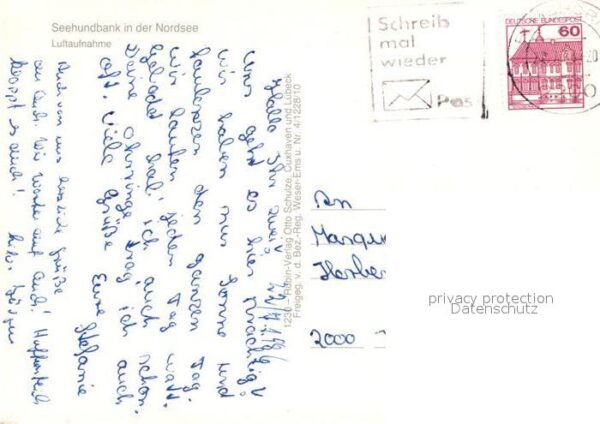 Seehundbank in der Nordsee
Luftaufnahme
Schreib
mal
wieder
Post
DEUTSCHE BUNDESPOST
60
Hallo Ihr zwei!
Uns geht es hier prächtig!
Wir haben nur Sonne und
faulenzen den ganzen Tag.
Wir laufen jeden Tag Watt.
Gelockt hab' ich auch schon.
Deine Ohrringe trag' ich auch
oft. Viele Grüße
Eure Stefanie
Auch von uns herzliche Grüße
an Euch. Wir warten auf Euch! Hoffentlich
klappt es auch!
1230 - Rubin-Verlag Otto Schulze, Cuxhaven und Lübeck
Freigeg. v. d. Bez.-Reg. Weser-Ems u. Nr. 4/1228/10
An
Herbe
2000
privacy protection
Datenschutz